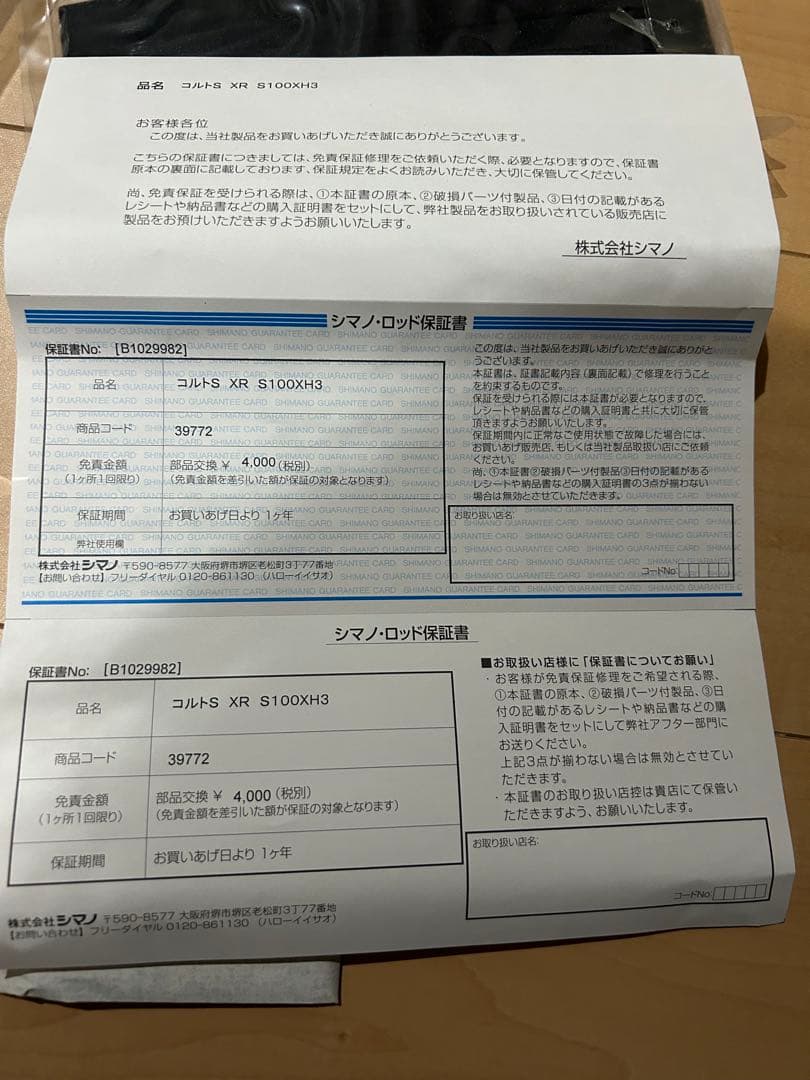 品名 コルトS XR S100XH3
お客様各位
この度は、当社製品をお買いあげいただき誠にありがとうございます。
こちらの保証書につきましては、免責保証修理をご依頼いただく際、必要となりますので、保証書
原本の裏面に記載しております、保証規定をよくお読みいただき、大切に保管してください。
尚、免責保証を受けられる際は、①本証書の原本、②破損パーツ付製品、③日付の記載がある
レシートや納品書などの購入証明書をセットにして、弊社製品をお取り扱いされている販売店に
製品をお預けいただきますようお願いいたします。
株式会社シマノ
シマノ・ロッド保証書
保証書No: [B1029982]
品名 コルトS XR S100XH3
商品コード 39772
免責金額 部品交換 ¥ 4,000 (税別)
(1ヶ所1回限り) (免責金額を差引いた額が保証の対象となります)
保証期間 お買いあげ日より 1ヶ年
弊社使用欄
株式会社シマノ 〒590-8577 大阪府堺市堺区老松町3丁77番地
【お問い合わせ】フリーダイヤル 0120-861130 (ハローイイサオ)
この度は、当社製品をお買いあげいただき誠にありがと
うございます。
本証書は、証書記載内容(裏面記載)で修理を行うこと
を約束するものです。
保証を受けられる際には本証書が必要となりますので、
レシートや納品書などの購入証明書と共に大切に保管
頂きますようお願いいたします。
保証期間内に正常なご使用状態で故障した場合には、
お買いあげ販売店、もしくは当社製品取扱い店にご依頼
ください。
尚、①本証書②破損パーツ付製品③日付の記載がある
レシートや納品書などの購入証明書の3点が揃わない
場合は無効とさせていただきます。
お取り扱い店名:
コードNo.
シマノ・ロッド保証書
保証書No: [B1029982]
品名 コルトS XR S100XH3
商品コード 39772
免責金額 部品交換 ¥ 4,000 (税別)
(1ヶ所1回限り) (免責金額を差引いた額が保証の対象となります)
保証期間 お買いあげ日より 1ヶ年
株式会社シマノ 〒590-8577 大阪府堺市堺区老松町3丁77番地
【お問い合わせ】フリーダイヤル 0120-861130 (ハローイイサオ)
■お取扱い店様に「保証書についてお願い」
・お客様が免責保証修理をご希望される際、
①本証書の原本、②破損パーツ付製品、③日
付の記載があるレシートや納品書などの購
入証明書をセットにして弊社アフター部門に
お送りください。
上記3点が揃わない場合は無効とさせてい
ただきます。
・本証書のお取り扱い店控は貴店にて保管い
ただきますよう、お願いいたします。
お取り扱い店名:
コードNo.